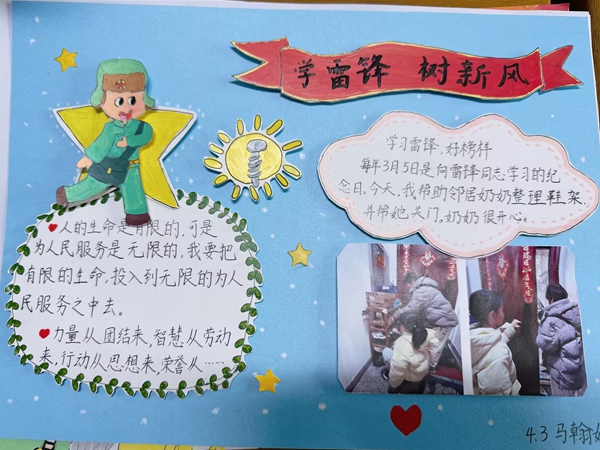 学雷锋 树新风
学习雷锋、好榜样
每年3月5日是向雷锋同志学习的纪
念日,今天,我帮助邻居奶奶整理鞋架,
并帮她关门。奶奶很开心。
人的生命是有限的,可是
为人民服务是无限的,我要把
有限的生命,投入到无限的为人
民服务之中去。
力量从团结来,智慧从劳动
来,行动从思想来,荣誉从……
4.3 马翰